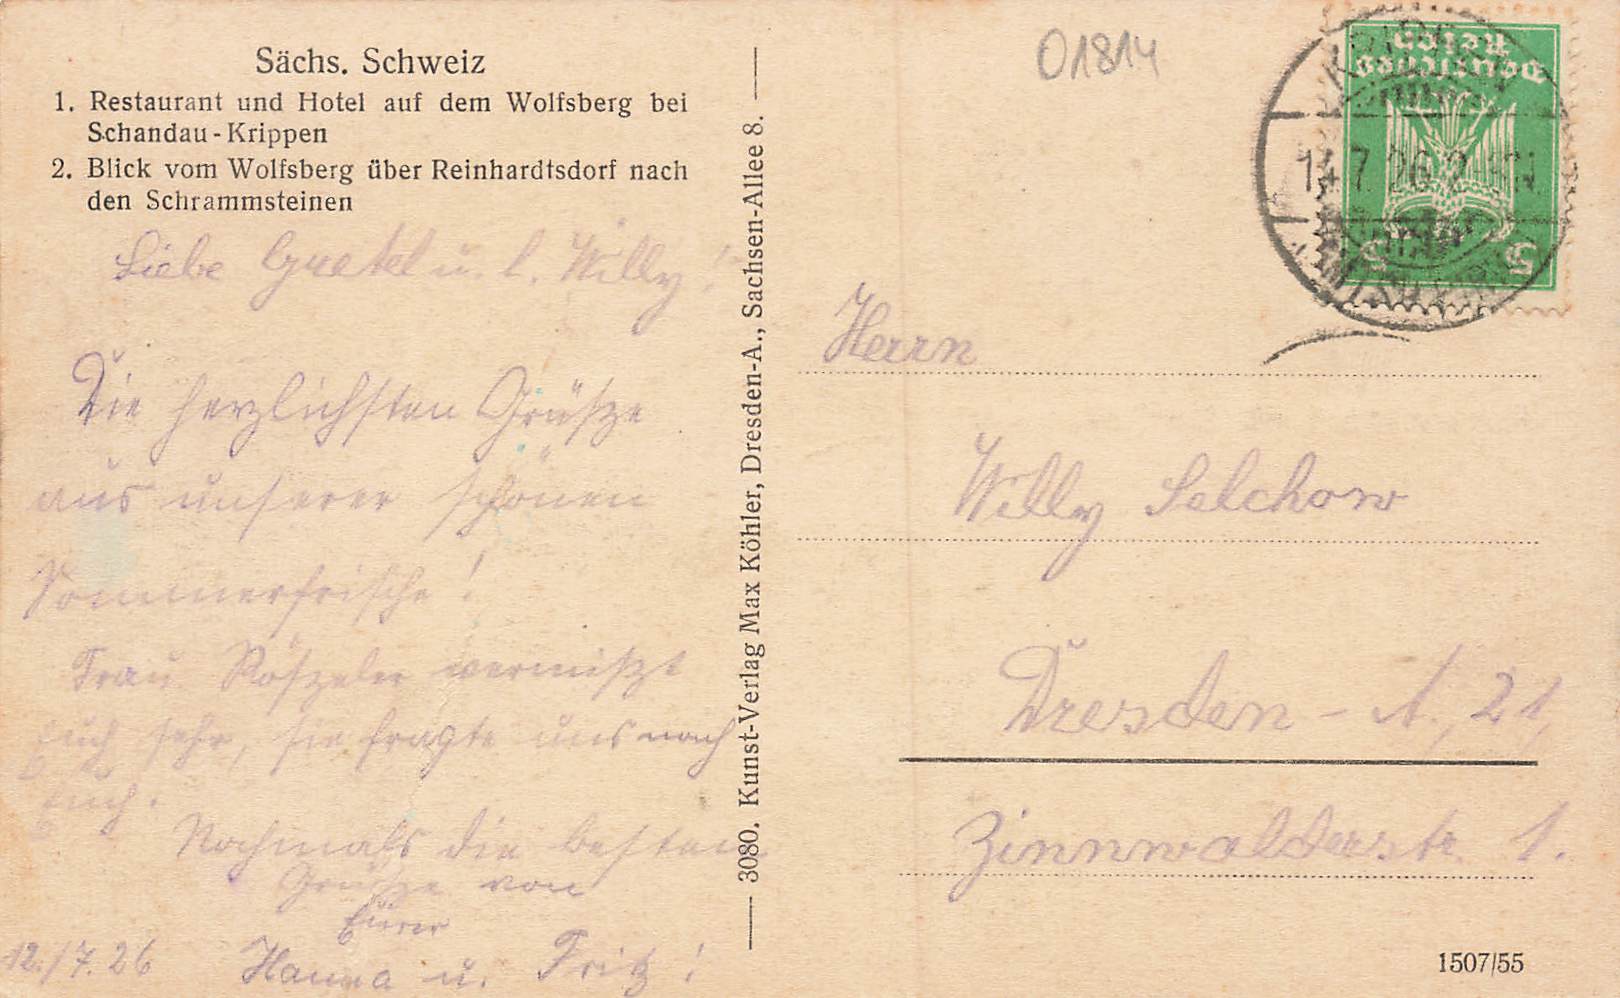 Sächs. Schweiz
1. Restaurant und Hotel auf dem Wolfsberg bei
Schandau-Krippen
2. Blick vom Wolfsberg über Reinhardtsdorf nach
den Schrammsteinen
Liebe Gretel u. l. Willy!
Die herzlichsten Grüsze
aus unserer schönen
Sommerfrische!
Frau vermiszt
Euch sehr, sie fragte uns nach
Euch.
Nochmals die besten
Grüsze von
Eurer
Hanna u. Fritz!
12./7.26
3080. Kunst-Verlag Max Köhler, Dresden-A., Sachsen-Allee 8.
01814
Deutsches
Reich
5 5
14.7.26.2
Herrn
Willy Selchow
Dresden - A, 21,
Zinnwalderstr 1.
1507/55